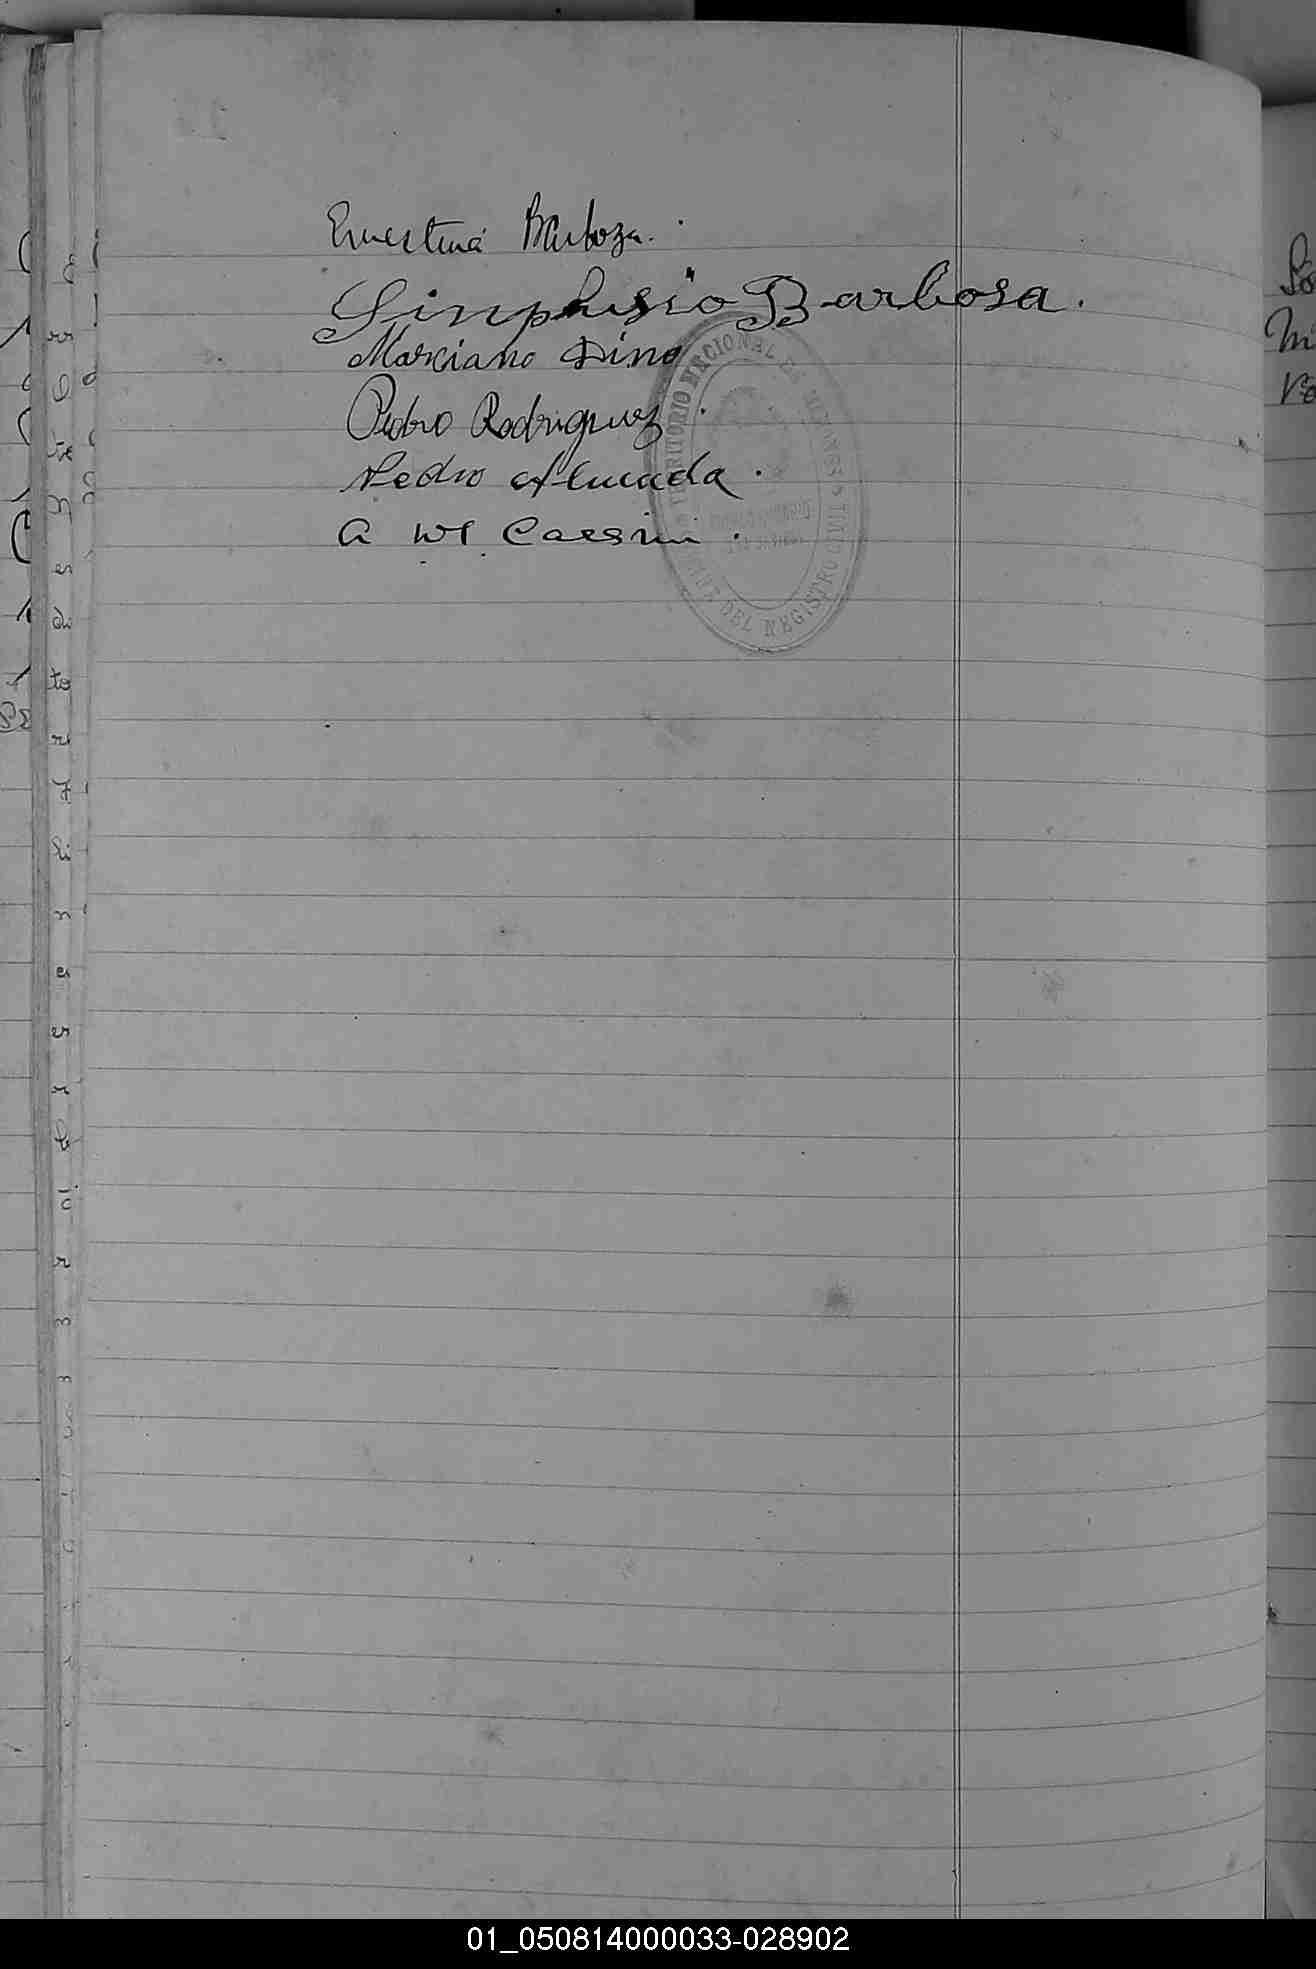 Ernestina Barboza.
Simphusio Barbosa.
Marciano Dino
Pedro Rodriguez.
Pedro Almada.
TERRITORIO NACIONAL DE MISIONES
DEL REGISTRO CIVIL
01_050814000033-028902